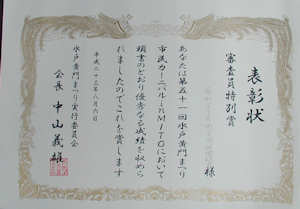 表彰状
審査員特別賞
様
あなたは第五十一回水戸黄門まつり
市民カーニバルinMITOにおいて
頭書のとおり優秀なる成績を収めら
れましたのでこれを賞します
平成二十三年八月六日
水戸黄門まつり実行委員会
会長 中山義雄